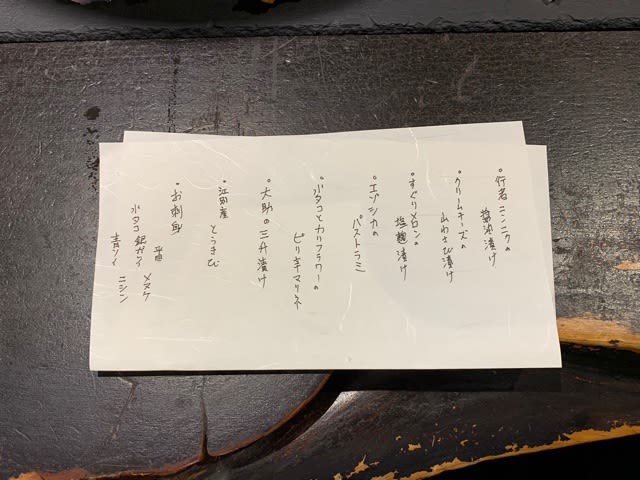 ・行者ニンニクの
醤油漬け
・クリームチーズの
山わさび漬け
・すぐりメロンの
塩麹漬け
・エゾシカの
パストラミ
・水タコとカリフラワーの
ピリ辛マリネ
・大助の三升漬け
・江別産とうきび
・お刺身
メヌケ
水タコ 銀ガレイ
青ソイ ニシン